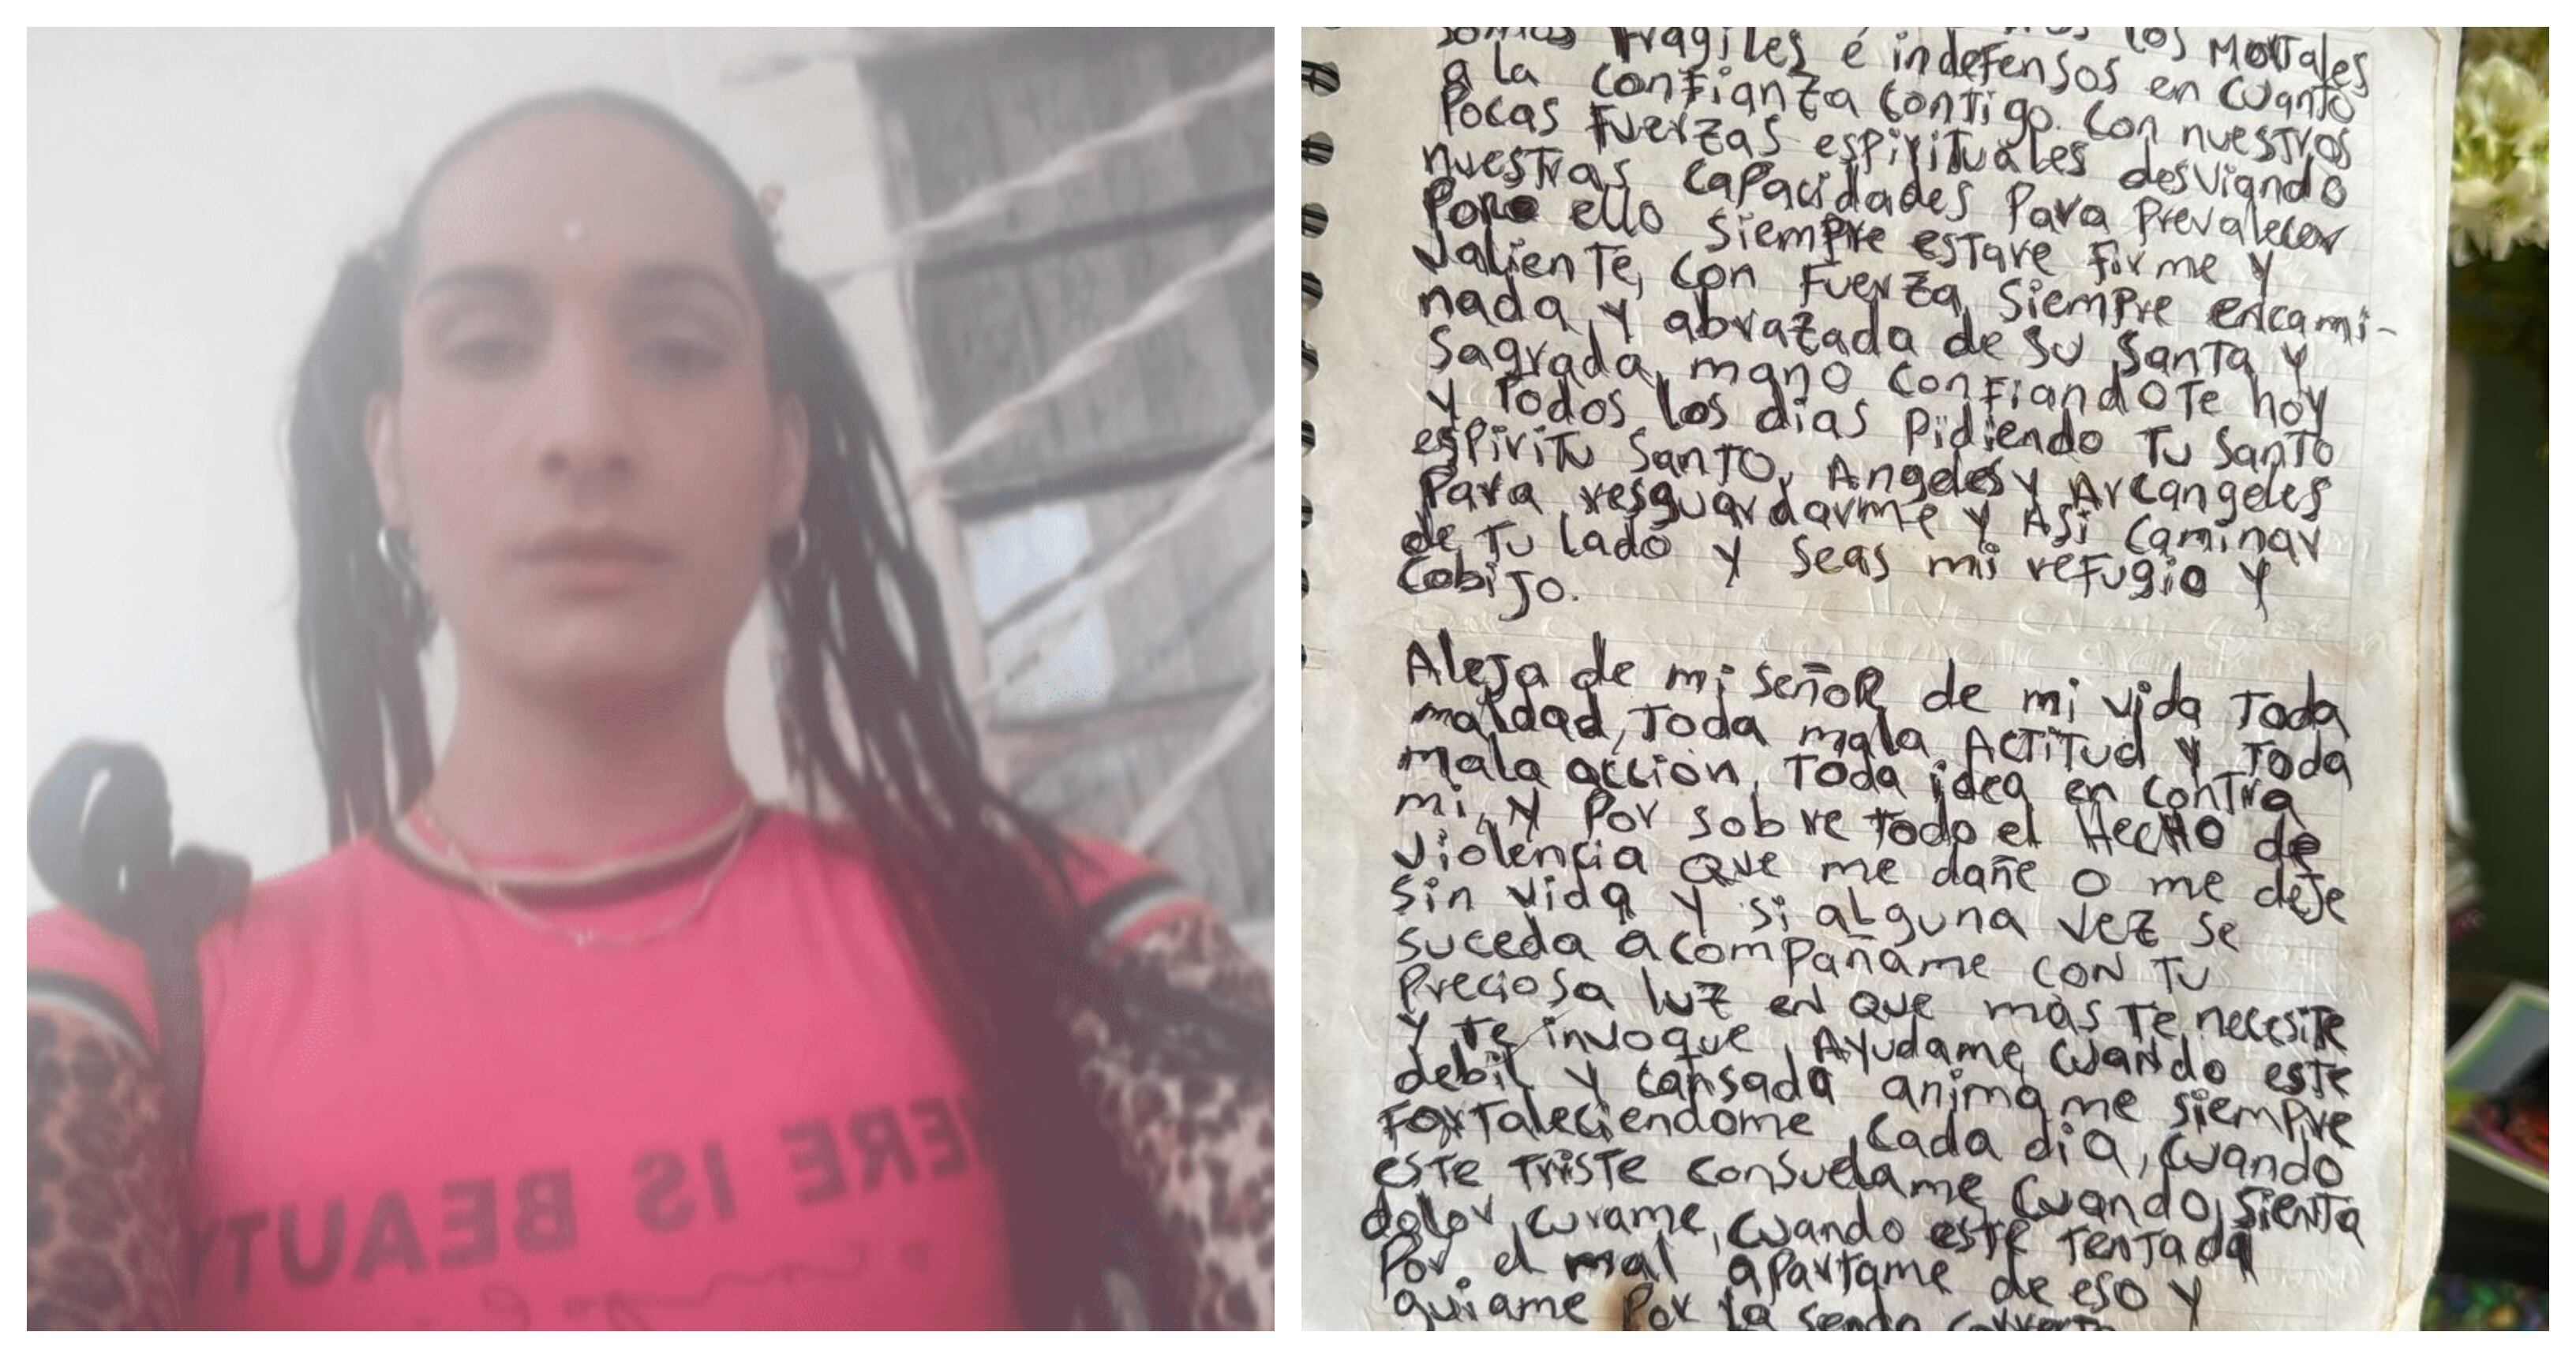 ERE IS BEAUTY
somos fragiles e indefensos los Mortales
a la confianza contigo. Con nuestros en cuanto
Pocas Fuerzas espirituales desviando
nuestras capacidades Para Prevalecer
Por ello siempre estare firme y
Valiente, con Fuerza, Siempre encami-
nada, y abrazada de su Santa y
Sagrada, mano confiandote hoy
y Todos los dias Pidiendo Tu Santo
espiritu Santo, Angeles y Arcangeles
Para resguardarme y Asi Caminar
de Tu lado y seas mi refugio y
Cobijo.
Aleja de mi señor de mi vida Toda
maldad, Toda mala Actitud y Toda
mala accion, Toda idea en contra
mi, y Por sobre Todo el Hecho de
violencia Que me dañe o me deje
sin vida y si alguna vez se
suceda acompañame con Tu
Preciosa luz en Que mas Te necesite
y Te invoque, Ayudame cuando este
debil y cansada animame siempre
Fortaleciendome, cada dia, cuando
este Triste consuelame cuando, sienta
dolor, curame, cuando este Tentada
Por el mal apartame de eso y
guiame Por la senda